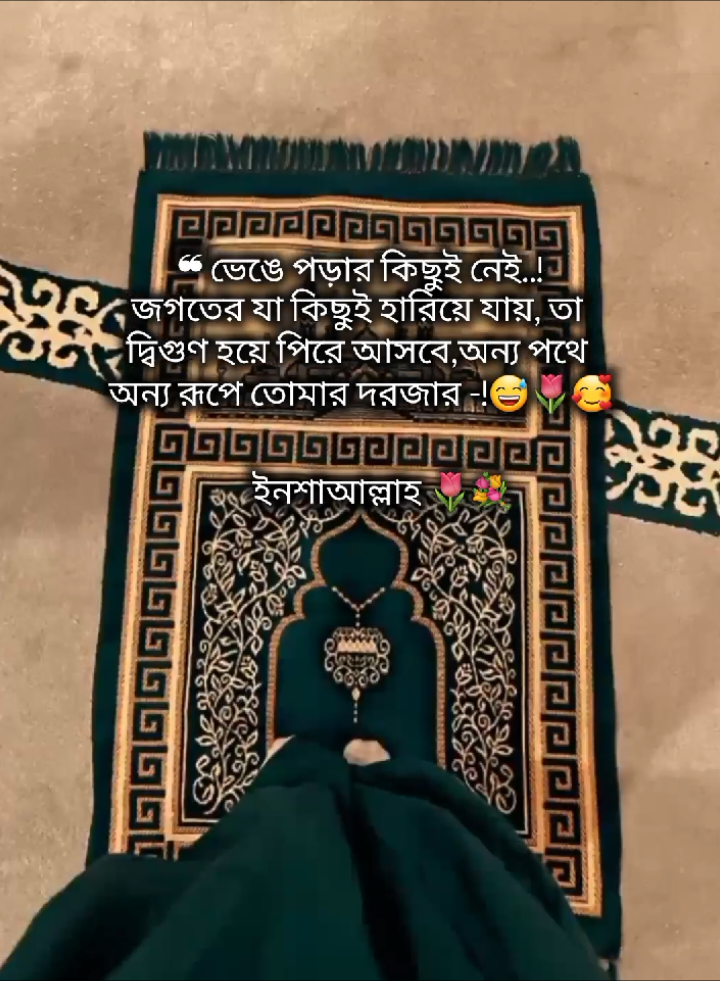 ❝ ভেঙে পড়ার কিছুই নেই..!
জগতের যা কিছুই হারিয়ে যায়, তা
দ্বিগুণ হয়ে পিরে আসবে,অন্য পথে
অন্য রূপে তোমার দরজার -!😅🌷🥰
ইনশাআল্লাহ 🌷💐